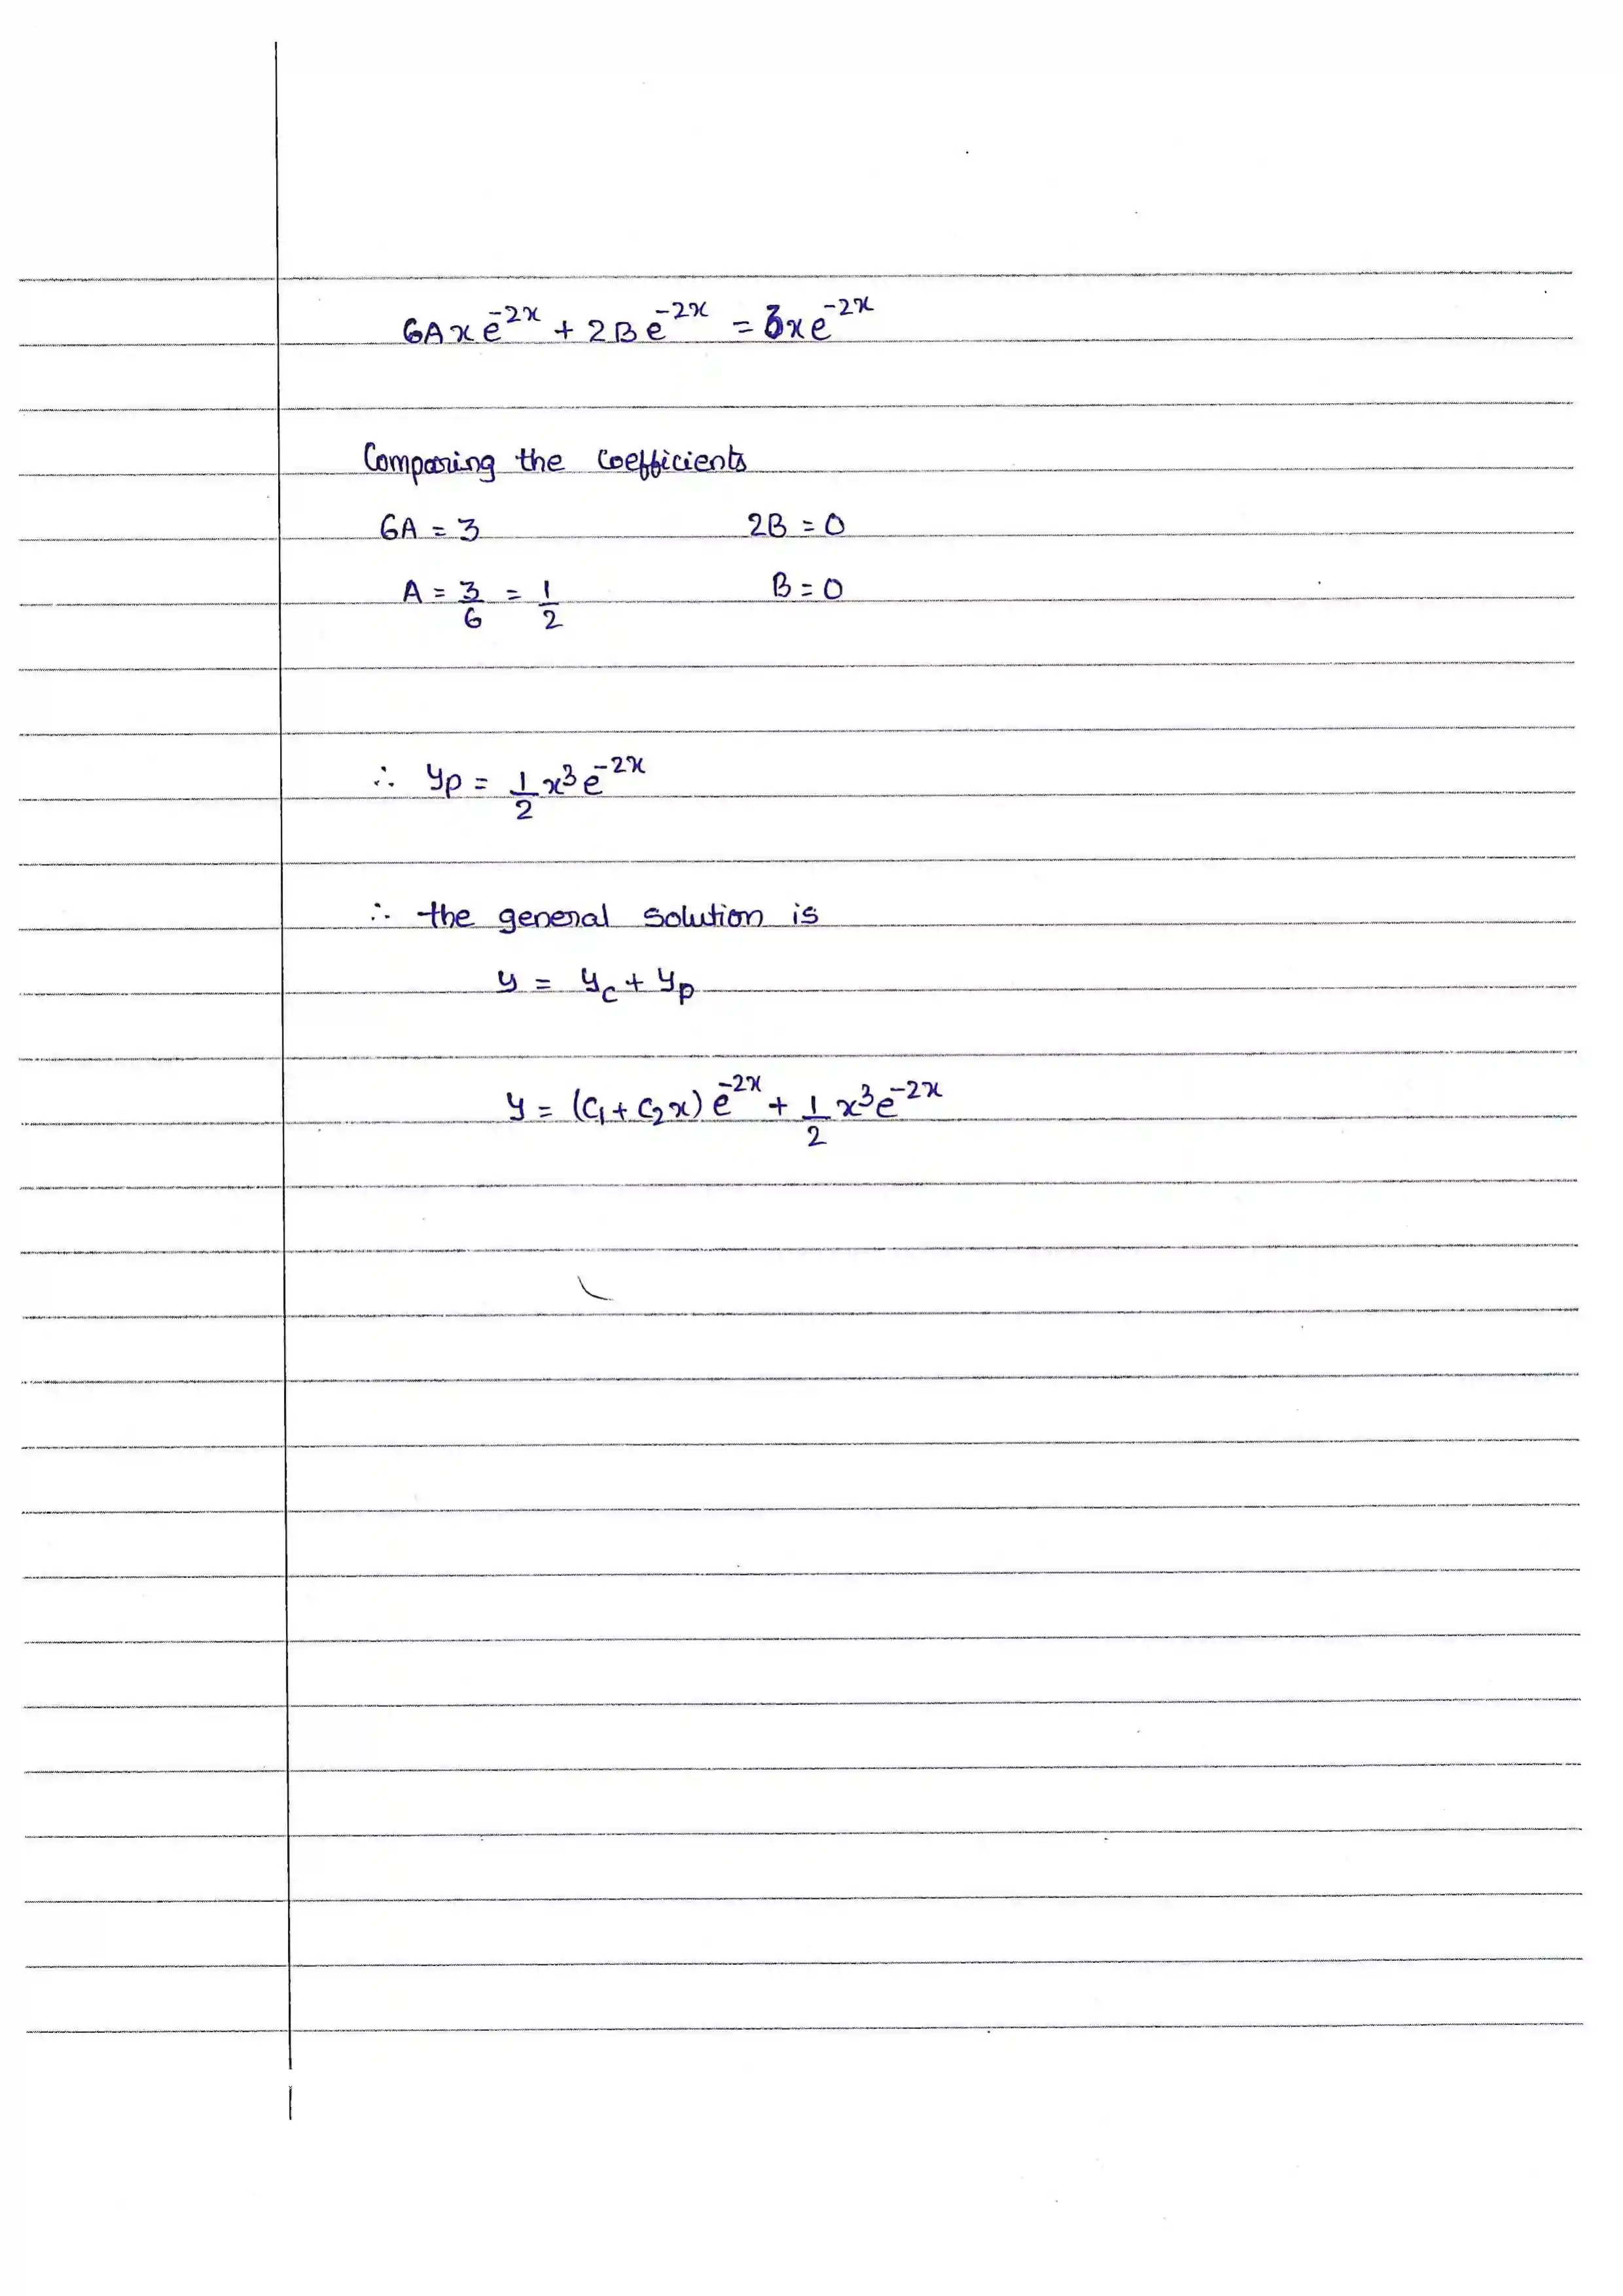 6Axe^{-2x} + 2Be^{-2x} = 3xe^{-2x}
Comparing the coefficients
6A = 3 2B = 0
A = 3/6 = 1/2 B = 0
∴ y_p = 1/2 x^3 e^{-2x}
∴ the general solution is
y = y_c + y_p
y = (c_1 + c_2 x) e^{-2x} + 1/2 x^3 e^{-2x}